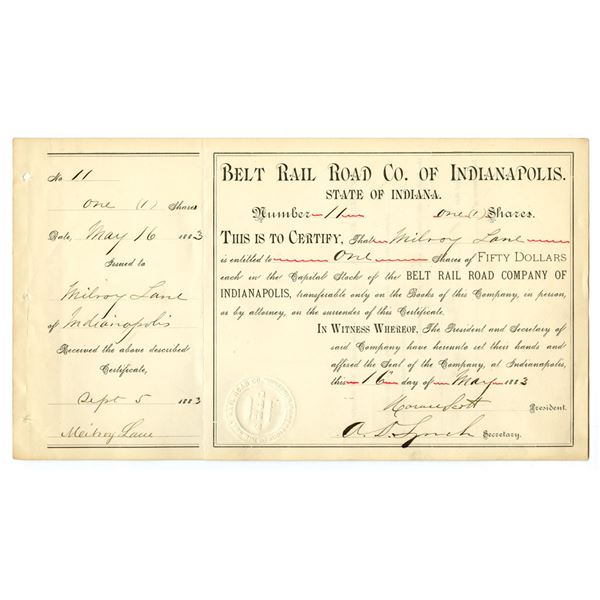 No 11
one (1) Shares
Date, May 16 1883
Issued to
Milroy Lane
of Indianapolis
Received the above described
Certificate,
Sept 5 1883
Milroy Lane
BELT RAIL ROAD CO. OF INDIANAPOLIS.
STATE OF INDIANA.
Number 11 one (1) Shares.
THIS IS TO CERTIFY, That Milroy Lane
is entitled to one Shares of FIFTY DOLLARS
each in the Capital Stock of the BELT RAIL ROAD COMPANY OF
INDIANAPOLIS, transferable only on the Books of this Company, in person,
or by attorney, on the surrender of this Certificate.
IN WITNESS WHEREOF, The President and Secretary of
said Company have hereunto set their hands and
affixed the Seal of the Company, at Indianapolis,
this 16 day of May 1883
Horace Scott
President.
A. D. Lynch
Secretary.